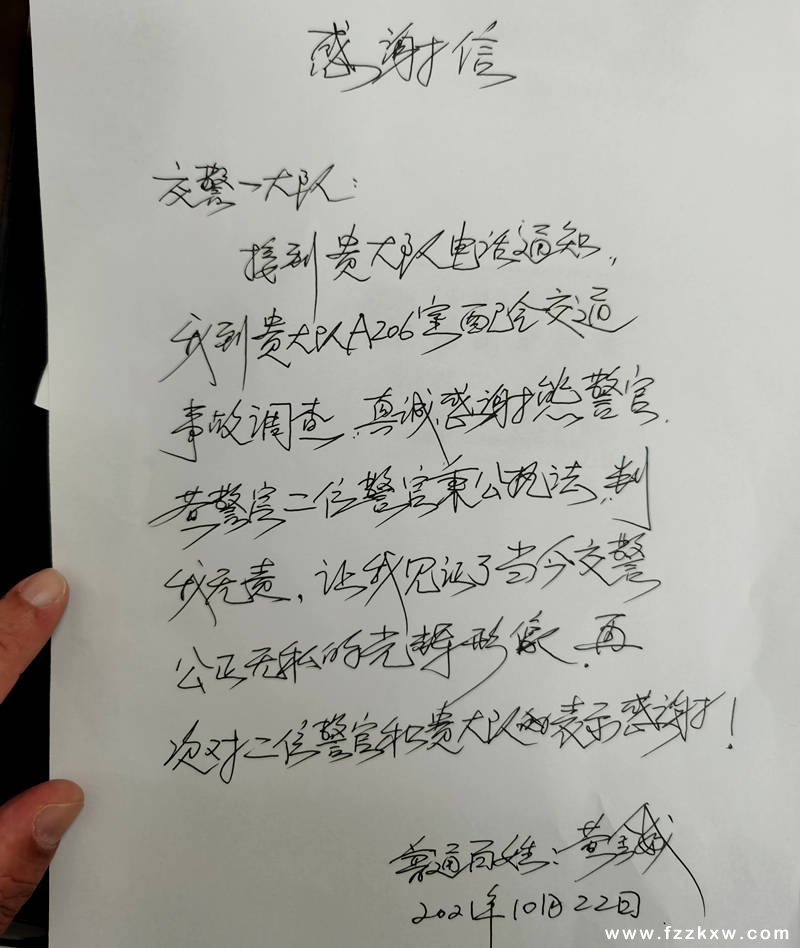 感谢信
交警一大队：
接到贵大队电话通知，
我到贵大队A206室配合交通
事故调查，真诚感谢熊警官、
黄警官二位警官秉公执法，判
我无责，让我见证了当今交警
公正无私的光辉形象，再
次对二位警官和贵大队表示感谢！
普通百姓：黄
2021年10月22日
www.fzzkxw.com